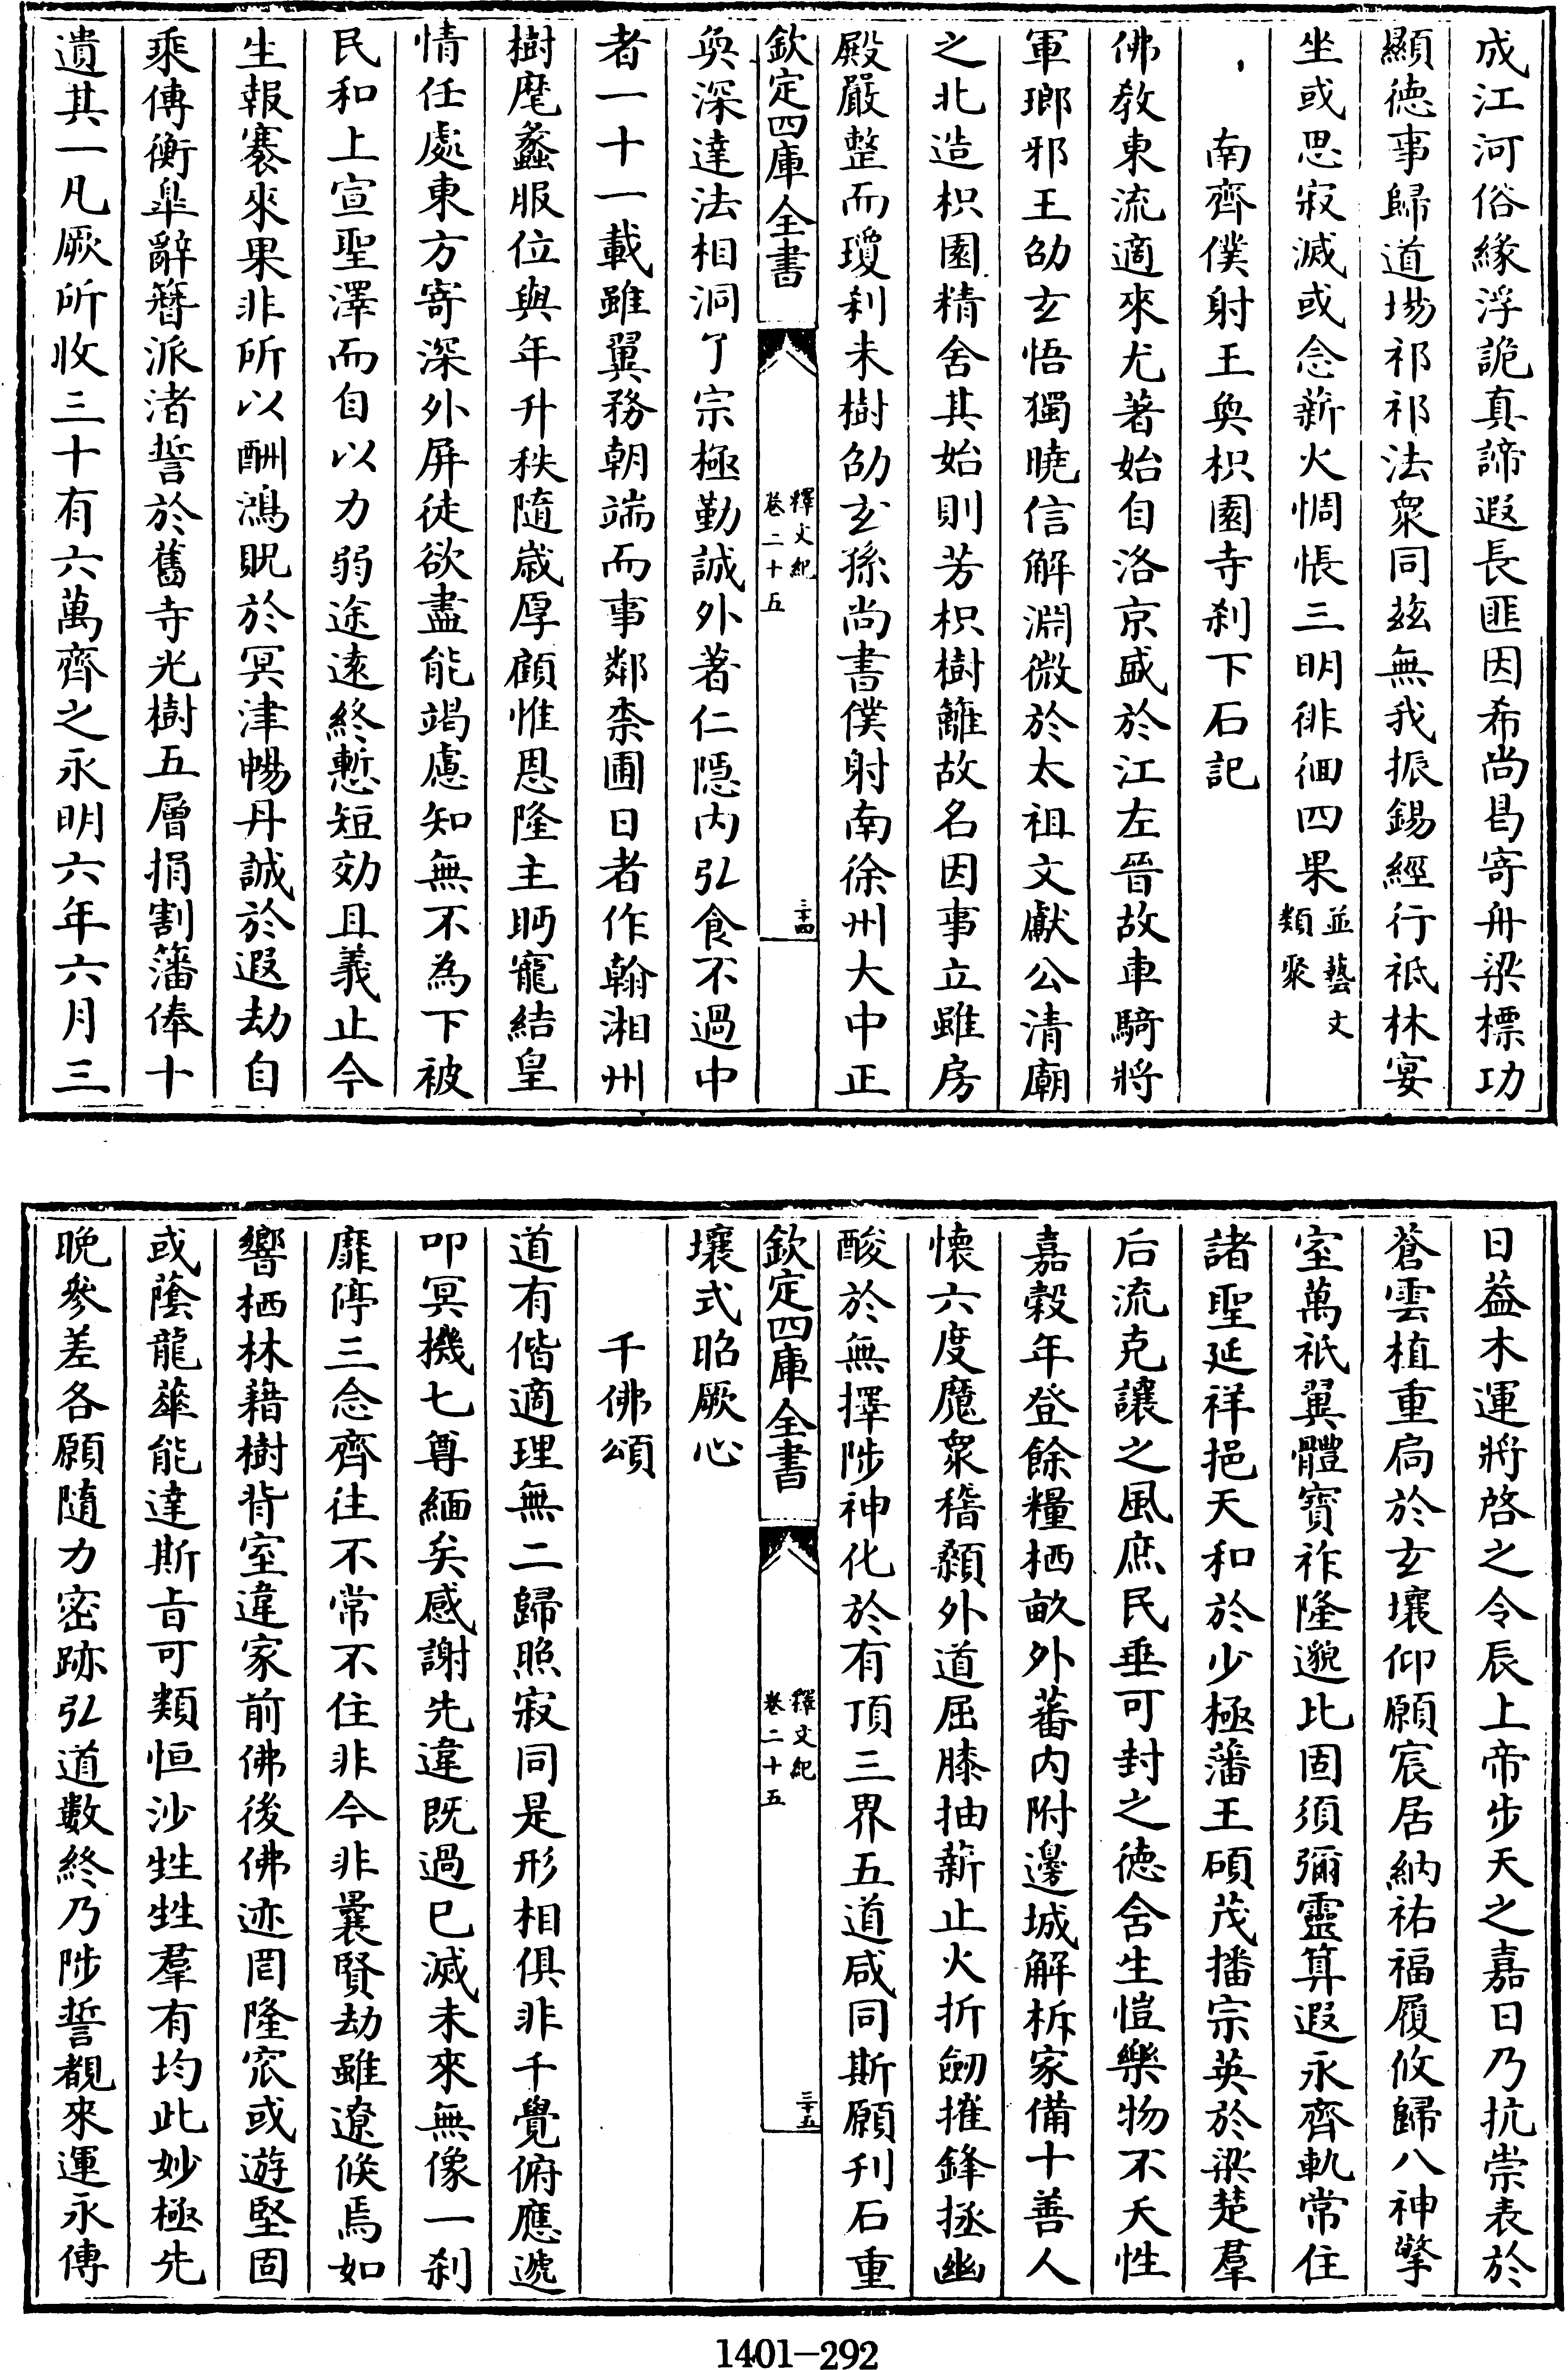 成江河俗緣浮詭真諦遐長匪因希尚曷寄舟梁標功
顯徳事歸道場祁祁法衆同兹無我振錫經行祗林宴
坐或思寂滅或念薪火惆悵三明徘徊四果並藝文類聚
南齊僕射王奐枳園寺刹下石記
佛教東流適來尤著始自洛京盛於江左晉故車騎將
軍瑯邪王劭玄悟獨曉信解淵微於太祖文獻公清廟
之北造枳園精舍其始則芳枳樹籬故名因事立雖房
殿嚴整而瓊刹未樹劭玄孫尚書僕射南徐州大中正
欽定四庫全書
釋文紀
卷二十五
三十四
奐深達法相洞了宗極勤誠外著仁隱内弘食不過中
者一十一載雖翼務朝端而事鄰柰圃日者作翰湘州
樹麾蠡服位與年升秩隨歳厚顧惟恩隆主眄寵結皇
情任處東方寄深外屏徒欲盡能竭慮知無不為下被
民和上宣聖澤而自以力弱途逺終慙短効且義止今
生報褰來果非所以酬鴻貺於冥津暢丹誠於遐劫自
乘傳衡臯辭簪派渚誓於舊寺光樹五層捐割藩俸十
遺其一凡厥所收三十有六萬齊之永明六年六月三
日葢木運將啓之令辰上帝步天之嘉日乃抗崇表於
蒼雲植重扃於玄壤仰願宸居納祐福履攸歸八神擎
室萬祇翼體寳祚隆邈比固須彌靈算遐永齊軌常住
諸聖延祥挹天和於少極藩王碩茂播宗英於梁楚羣
后流克讓之風庶民垂可封之徳含生愷樂物不夭性
嘉穀年登餘糧栖畝外蕃内附邊城解柝家備十善人
懐六度魔衆稽顙外道屈膝抽薪止火折劒摧鋒拯幽
酸於無擇陟神化於有頂三界五道咸同斯願刋石重
欽定四庫全書
釋文紀
卷二十五
三十五
壤式昭厥心
千佛頌
道有偕適理無二歸照寂同是形相俱非千覺俯應遞
叩冥機七尊緬矣感謝先違既過已滅未來無像一刹
靡停三念齊往不常不住非今非曩賢劫雖遼倐焉如
響栖林藉樹背室違家前佛後佛迹罔隆窊或遊堅固
或蔭龍華能達斯㫖可類恒沙甡甡羣有均此妙極先
晚參差各願隨力密跡弘道數終乃陟誓覩來運永傳
1401-292